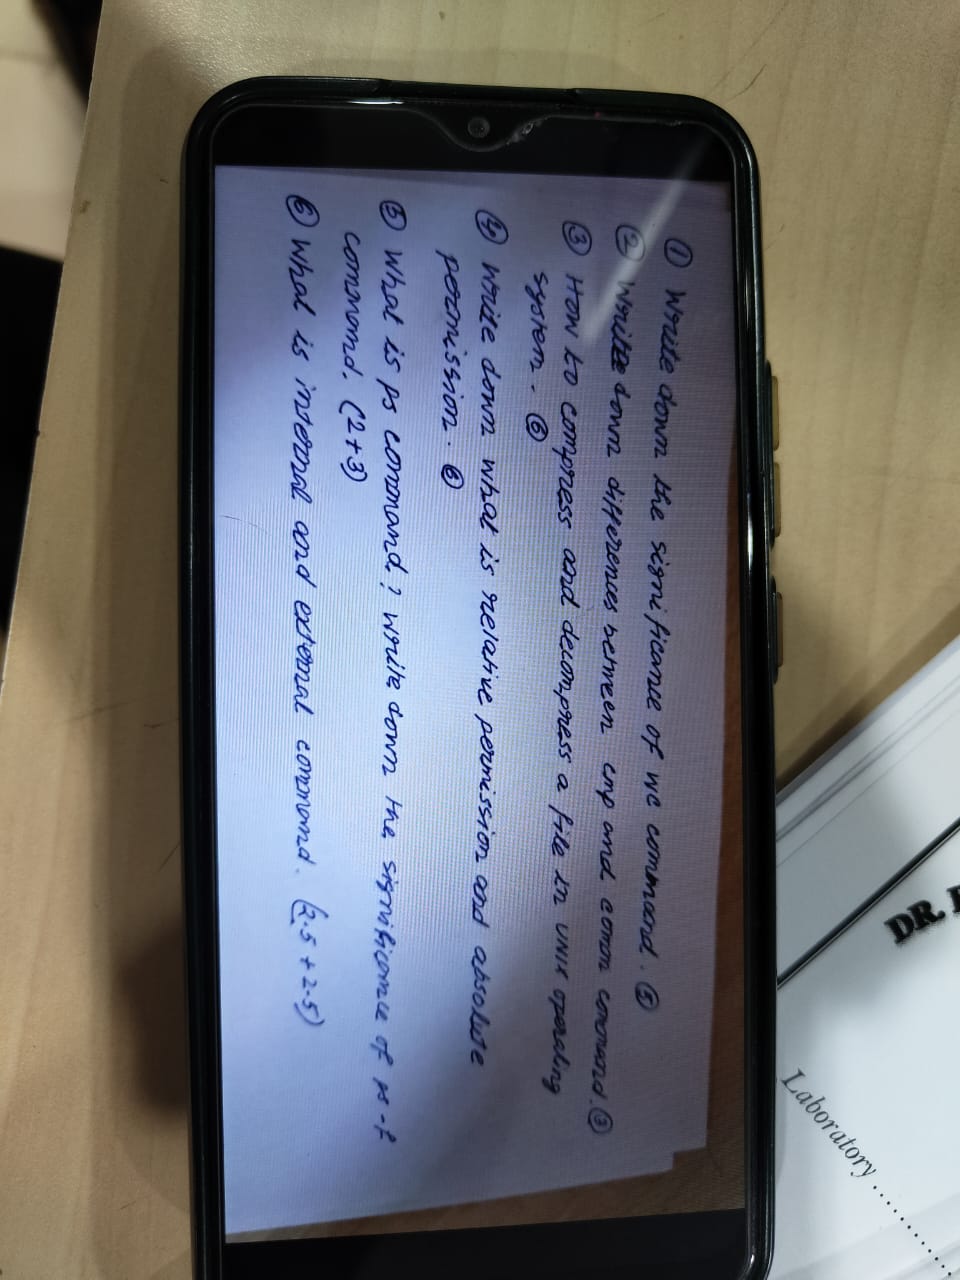 DR.
Laboratory ..............
① Write down the significance of wc command. ⑤
② Write down differences between cmp and comm command. ③
③ How to compress and decompress a file in UNIX operating
system. ⑥
④ Write down what is relative permission and absolute
permission. ⑥
⑤ What is ps command? Write down the significance of ps -f
command. (2+3)
⑥ What is internal and external command. (2.5 + 2.5)